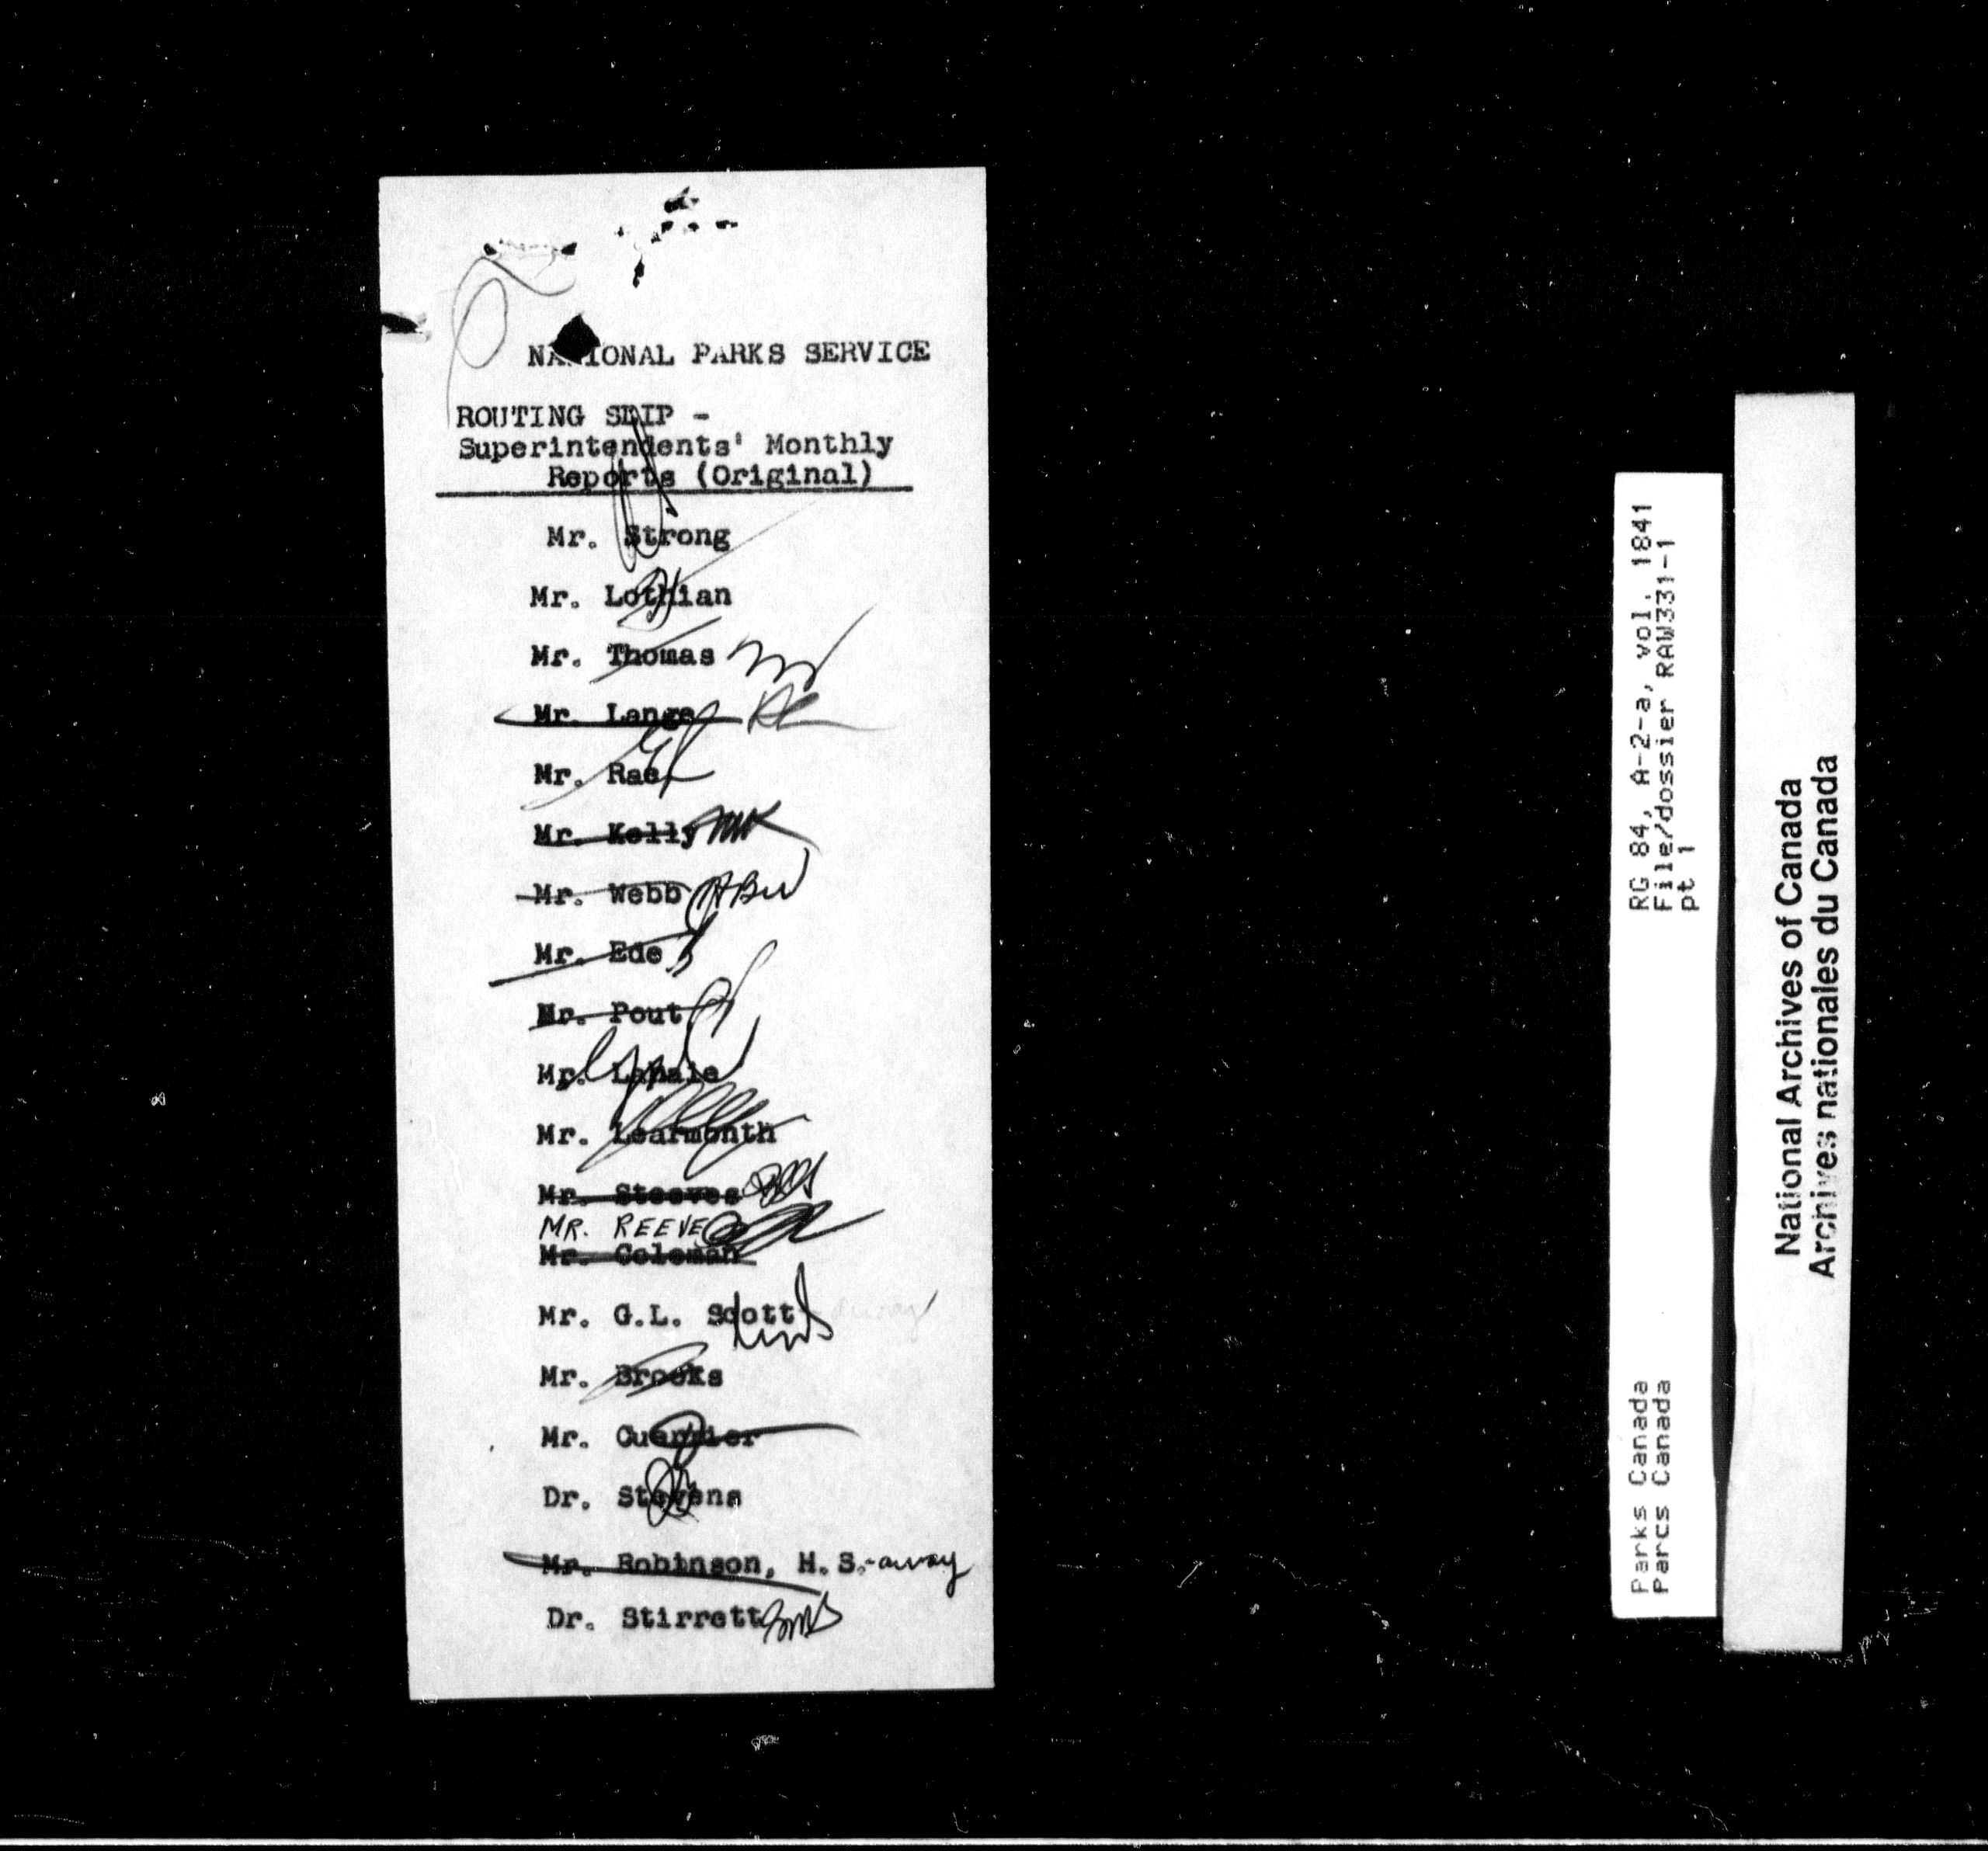 NATIONAL PARKS SERVICE
ROUTING SLIP -
Superintendents' Monthly
Reports (Original)
Mr. Strong
Mr. Lothian
Mr. Thomas
Mr. Lange
Mr. Rae
Mr. Kelly
Mr. Webb
Mr. Ede
Mr. Pout
Mr.
Mr. Learmonth
Mr. Steeves
MR. REEVE
Mr. Coleman
Mr. G.L. Scott away
Mr. Brooks
Mr.
Dr. Stevens
Mr. Robinson, H.S.-away
Dr. Stirrett
RG 84, A-2-a, vol. 1841
File/dossier RAW331-1
pt 1
Parks Canada
Parcs Canada
National Archives of Canada
Archives nationales du Canada